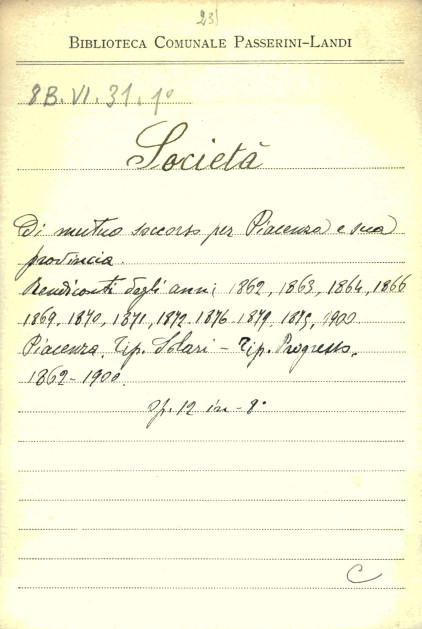 23
BIBLIOTECA COMUNALE PASSERINI-LANDI
8B.VI.31.1º
Società
Di mutuo soccorso per Piacenza e sua
provincia.
Rendiconti degli anni 1862, 1863, 1864, 1866
1869, 1870, 1871, 1872 1876 1879, 1900
Piacenza, Tip. Solari - Tip. Progresso,
1862-1900.
op. 12 in-8º
C